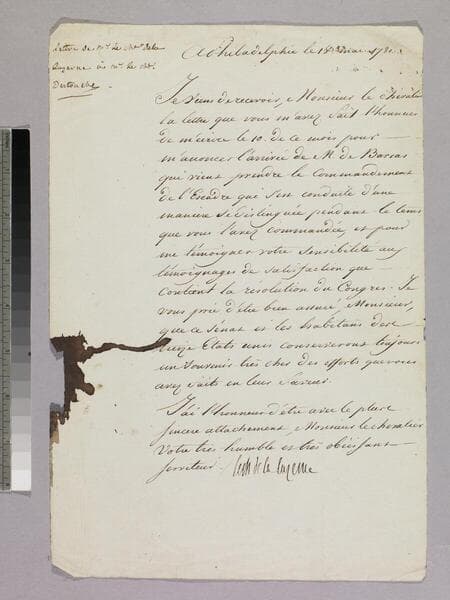 Lettre de Mr. le Chev. de la
Luzerne à Mr. le Ch.
Destouche
A Philadelphie le 18 mai 1781.
Je viens de recevoir, Monsieur le Chevalier
la lettre que vous m'avez fait l'honneur
de m'écrire le 10. de ce mois pour
m'annoncer l'arrivée de M. de Barras
qui vient prendre le commandement
de l'Escadre qui s'est conduite d'une
maniere si distinguée pendant le tems
que vous l'avez commandée, et pour
me témoigner votre sensibilité aux
témoignages de satisfaction que
contient la résolution du Congres. Je
vous prie d'être bien assuré, Monsieur,
que ce Senat et les habitans des
treize Etats unis conserveront toujours
un souvenir très cher des efforts que vous
avez faits en leur faveur.
J'ai l'honneur d'être avec le plus
sincere attachement, Monsieur le chevalier
Votre très humble et très obéissant
serviteur. le ch de la luzerne